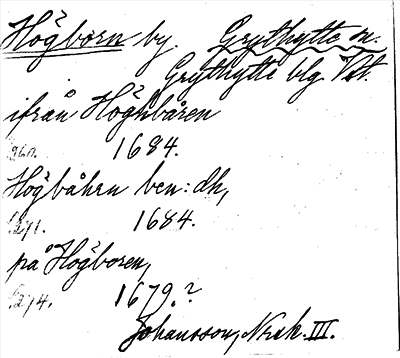 Högborn by. Grythytte sn.
Grythytte blg. Vstl.
ifrån Höghbåren
260. 1684.
Högbåhrn ben: dh,
271. 1684.
på Högboren,
274. 1679.?
Johansson, Nrak. III.